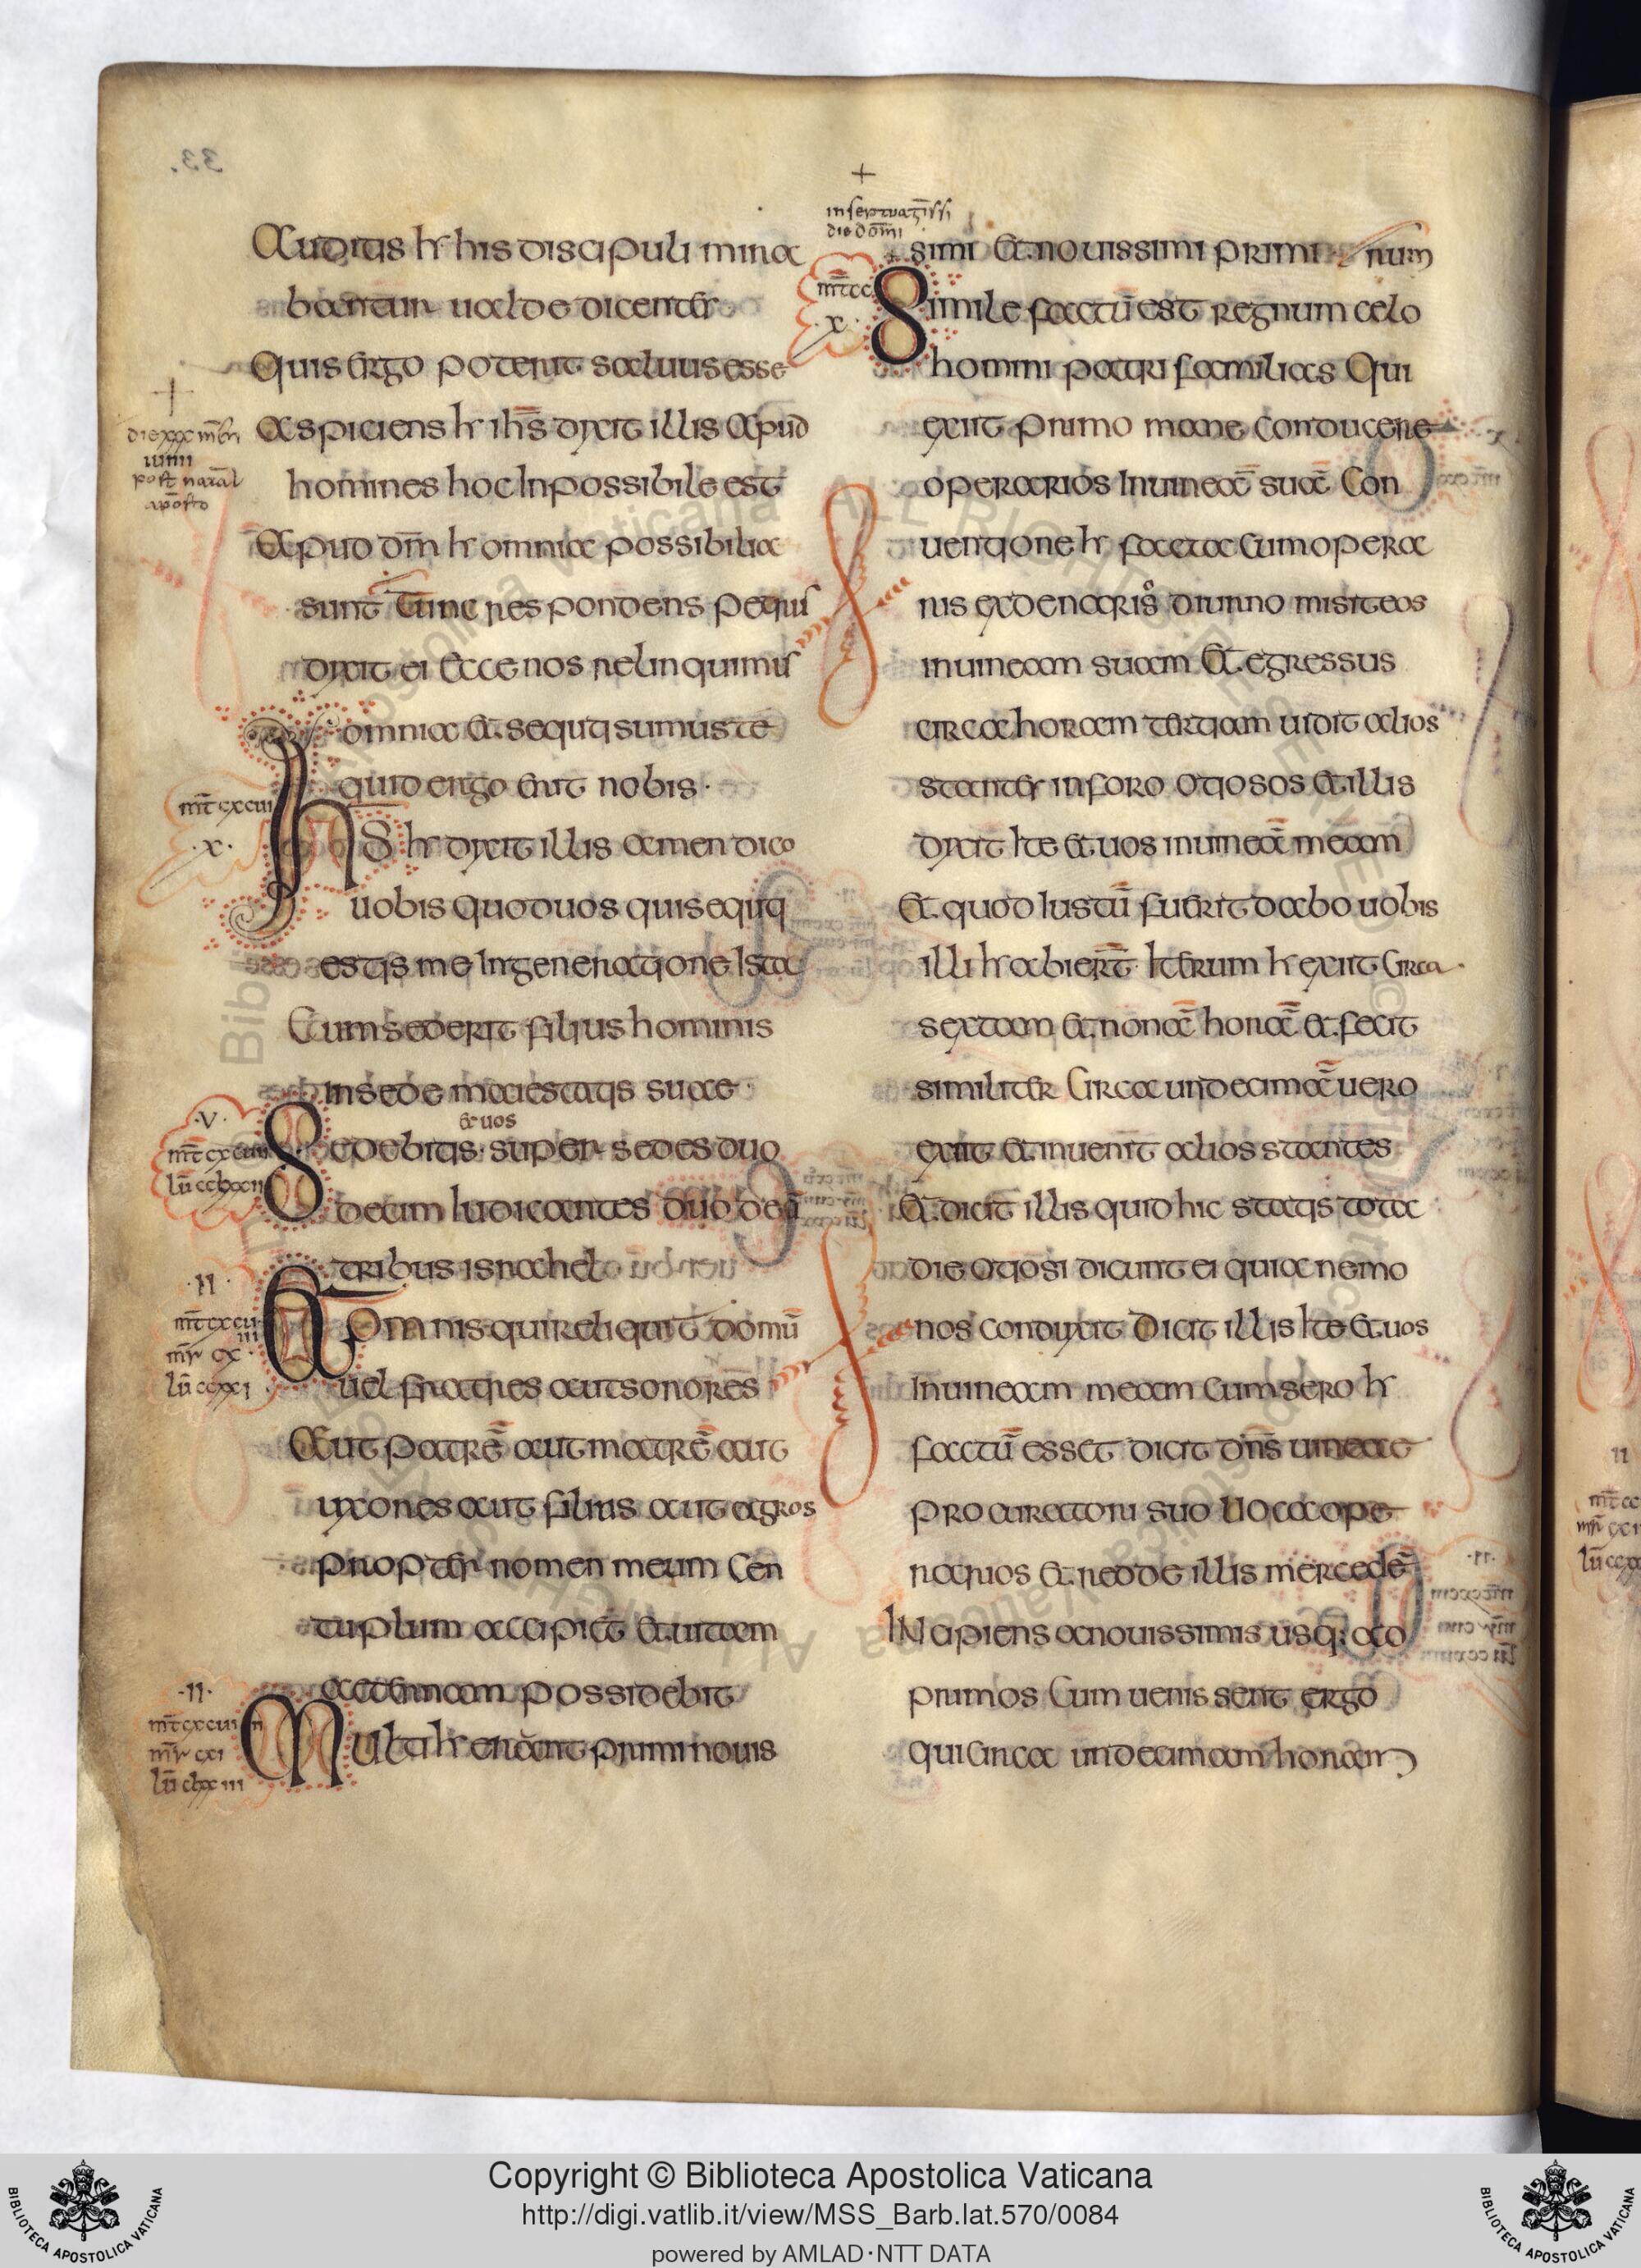 Auditis hr his discipuli mira
bantur ualde dicentes
Quis ergo poterit saluus esse
Aspiciens hr ihs dixit illis Apud
homines hoc Inpossibile est
Apud dm hr omnia possibilia
sunt Tunc respondens petrus
dixit ei Ecce nos relinquimus
omnia et sequti sumus te
quid ergo erit nobis
Ihs hr dixit illis amen dico
uobis quod uos qui sequti
estis me In generatione Ista
Cum sederit filius hominis
in sede maiestatis suae
et uos
Sedebitis super sedes duo
decim Iudicantes duodeci
tribus israhel
Et omnis qui reliquit domu
uel fratres aut sorores
Aut patre aut matre aut
uxores aut filius aut agros
propter nomen meum Cen
tuplum accipiet et uitam
aeternam possidebit
Multi hr erant primi nouis
+
in septuagissi
die domi
simi et nouissimi primi
rum
Simile factu est regnum celo
homini patri familias Qui
exiit primo mane Conducere
operarios In uinea sua Con
uentione hr facta Cum opera
riis ex denario diurno misit eos
in uineam suam Et egressus
circa horam tertiam uidit alios
stantes in foro otiosos et illis
dixit Ite et uos in uinea meam
Et quod Iustu fuerit dabo uobis
illi hr abiert Iterum hr exiit Circa
sextam et nona hora et fecit
similiter Circa undecima uero
exiit et inuenit alios stantes
Et dicit illis quid hic statis tota
die otiosi dicunt ei quia nemo
nos conduxit Dicit illis Ite et uos
In uineam meam Cum sero hr
factu esset dicit dns uineae
procuratori suo Uoca ope
rarios et redde illis mercede
INcipiens a nouissimis usq; ad
primos Cum uenissent ergo
qui Circa undecimam horam
+
post natal
aposto
mt cxcui
x
mt cc
x
v
ii
mr cx
lu ccxxi
ii
mr cxi
33.
Copyright © Biblioteca Apostolica Vaticana
http://digi.vatlib.it/view/MSS_Barb.lat.570/0084
powered by AMLAD·NTT DATA
BIBLIOTECA APOSTOLICA VATICANA
BIBLIOTECA APOSTOLICA VATICANA